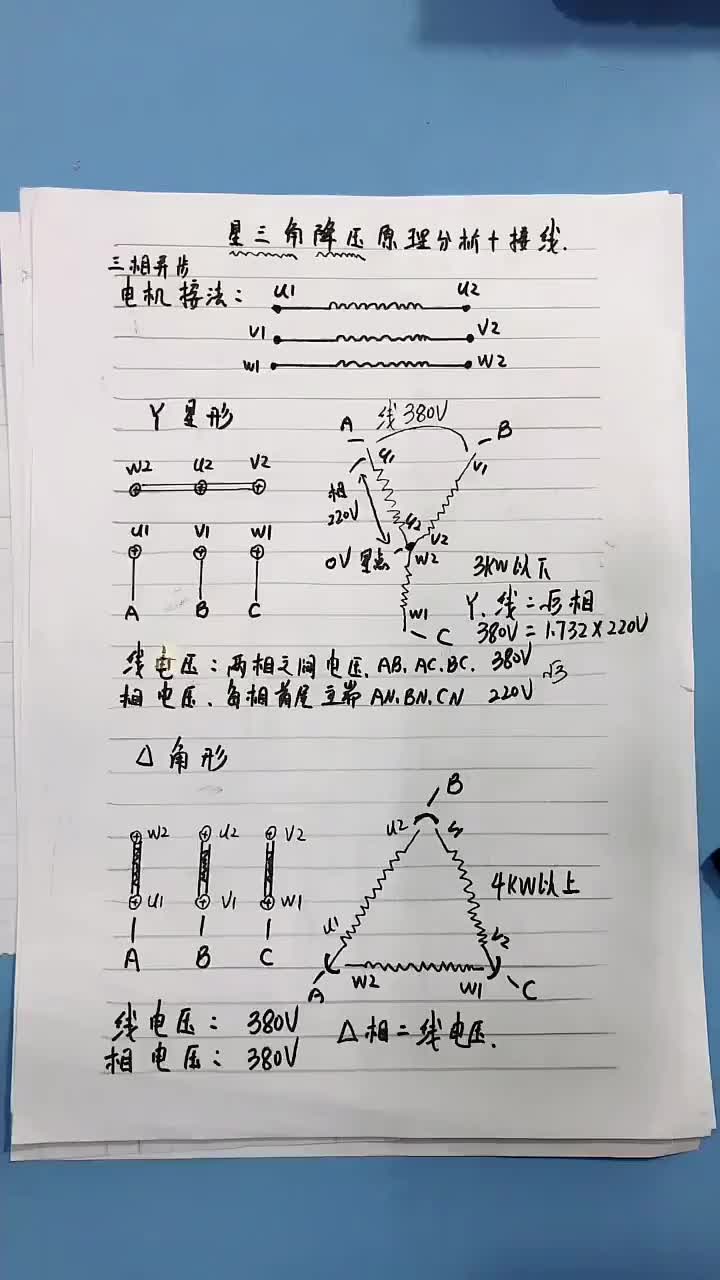 星三角降压原理分析+接线.
三相异步
电机接法: U1 U2
V1 V2
W1 W2
Y 星形
A 线380V B
U1 V1
W2 U2 V2
相
220V
U2 V2
0V 星点 W2
U1 V1 W1
3KW以下
A B C
W1 C
Y. 线=√3相
380V=1.732×220V
线电压: 两相之间电压. AB. AC. BC. 380V
√3
相电压. 每相首尾主端 AN. BN. CN 220V
△ 角形
B
W2 U2 V2
U2 V1
4KW以上
U1 V1 W1
U1 V2
A B C
A W2 W1 C
线电压: 380V
相电压: 380V
△相=线电压.